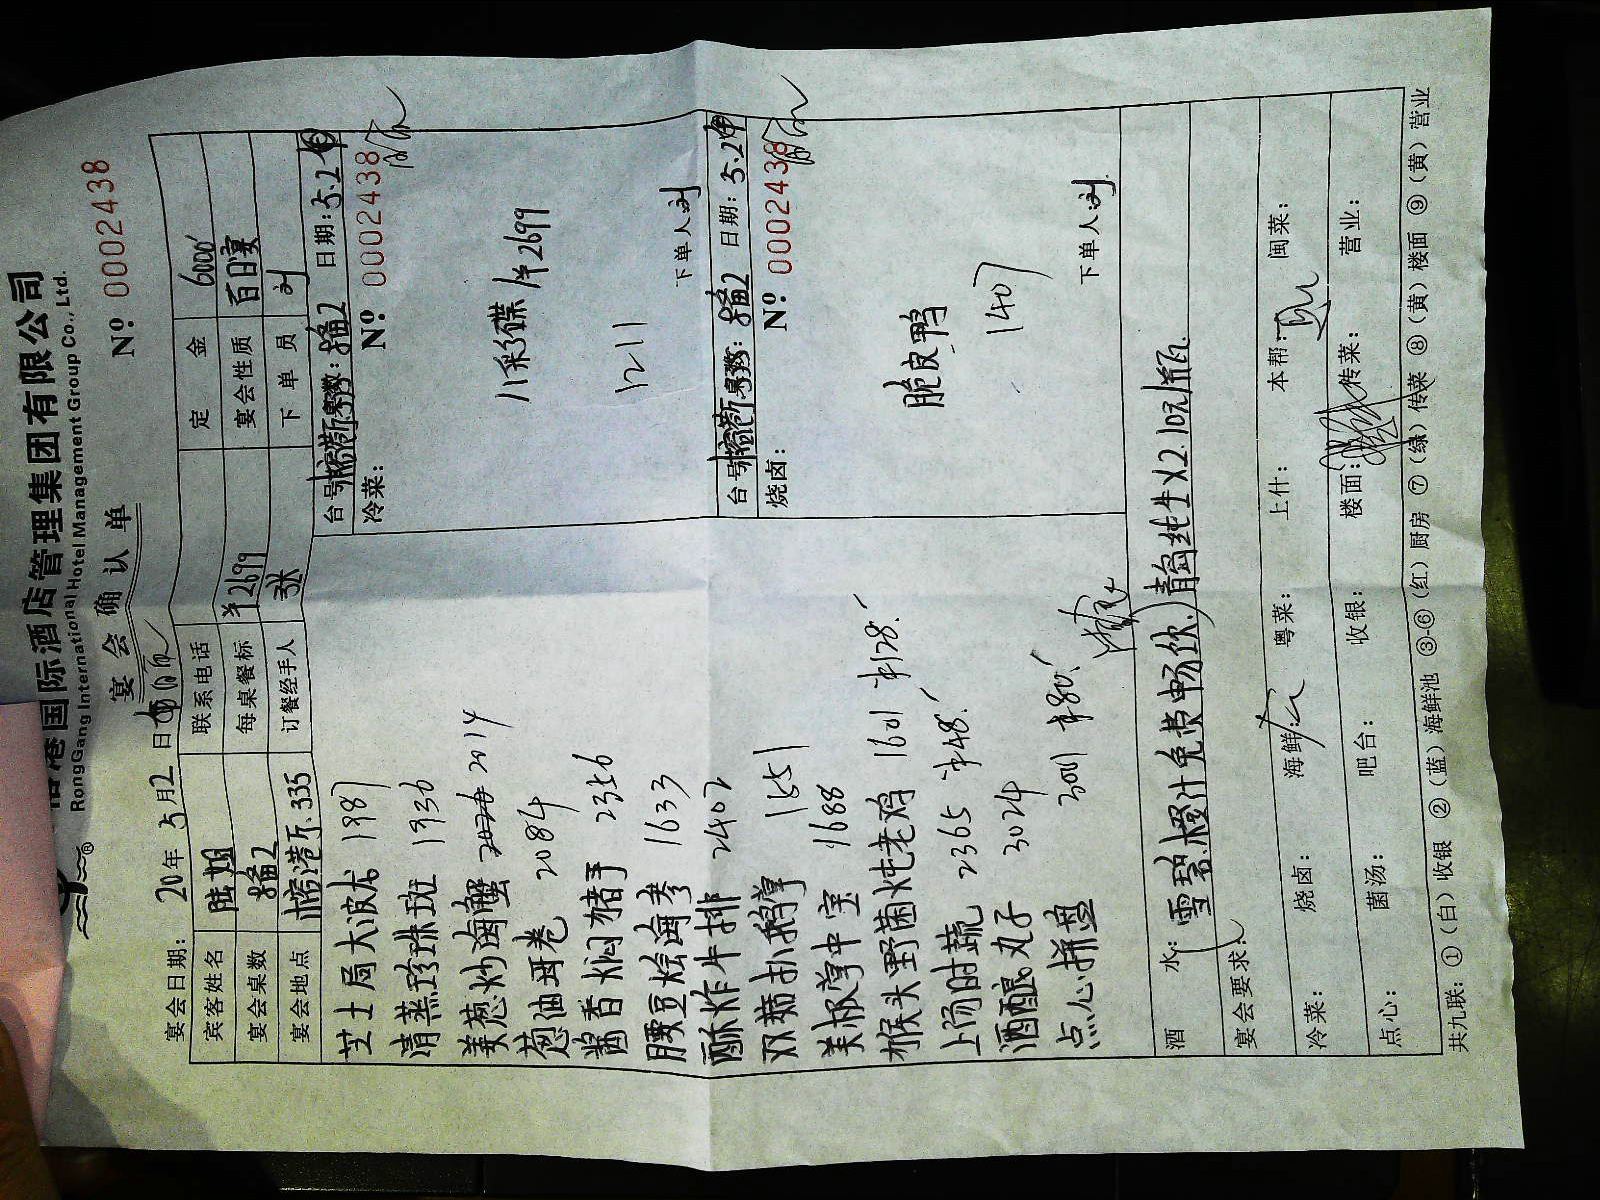 港国际酒店管理集团有限公司
RongGang International Hotel Management Group Co., Ltd.
宴会确认单
№: 0002438
宴会日期: 20年5月2日
宾客姓名 陆姐 联系电话 定金 6000
宴会桌数 每桌餐标 ¥2699 宴会性质 百日宴
宴会地点 榕港厅.335 订餐经手人 张 下单员 刘
芝士焗大波龙 1987
清蒸珍珠斑 1936
姜葱炒海蟹 2014
葱油耳卷 2084
酱香焖猪手 2356
腰豆烩海参 1633
酥炸牛排 2402
双菇扒鹅掌 1651
美极掌中宝 1688
猴头野菌炖老鸡 1601 ¥128
上汤时蔬 2365 ¥48
酒酿丸子 3024
点心拼盘 3001 ¥80
台号 榕港厅 桌数: 日期: 5.2
冷菜: №: 0002438
八彩碟 ¥2699
1211
下单人: 刘
台号 榕港厅 桌数: 日期: 5.2
烧卤: №: 0002438
脆皮鸭
1407
下单人: 刘
酒水: 雪碧.橙汁免费畅饮.青岛纯生X2.10元/瓶.
宴会要求:
冷菜: 烧卤: 海鲜: 粤菜: 上什: 本帮: 闽菜:
点心: 菌汤: 吧台: 收银: 楼面: 传菜: 营业:
共九联: ①(白)收银 ②(蓝)海鲜池 ③-⑥(红)厨房 ⑦(绿)传菜 ⑧(黄)楼面 ⑨(黄)营业